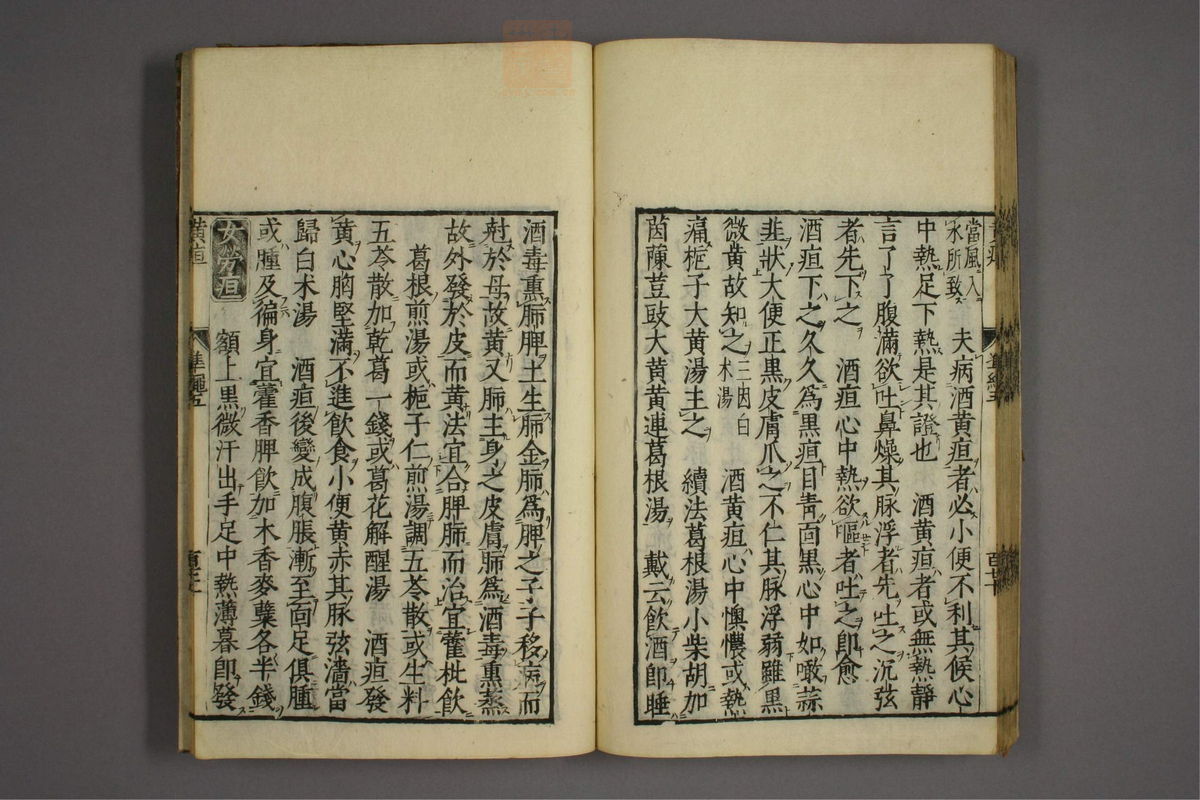 當風入
水所致
夫病酒黃疸者必小便不利其候心
中熱足下熱是其證也　酒黃疸者或無熱靜
言了了腹滿欲吐鼻燥其脉浮者先吐之沉弦
者先下之　酒疸心中熱欲嘔者吐之即愈
酒疸下之久久爲黑疸目青面黑心中如噉蒜
韭狀大便正黑皮膚爪之不仁其脉浮弱雖黑
微黃故知之
三因白
术湯
酒黃疸心中懊憹或熱
痛梔子大黃湯主之　續法葛根湯小柴胡加
茵蔯荳豉大黃黃連葛根湯　戴云飲酒即睡
酒毒熏肺脾土生肺金肺爲脾之子子移病而
尅於母故黃又肺主身之皮膚肺爲酒毒熏蒸
故外發於皮而黃法宜合脾肺而治宜藿枇飲
葛根煎湯或梔子仁煎湯調五苓散或生料
五苓散加乾葛一錢或葛花解酲湯　酒疸發
黃心胸堅滿不進飲食小便黃赤其脉弦濇當
歸白术湯　酒疸後變成腹脹漸至面足俱腫
或腫及徧身宜藿香脾飲加木香麥蘖各半錢
女勞疸　額上黑微汗出手足中熱薄暮即發
黃疸
準繩五